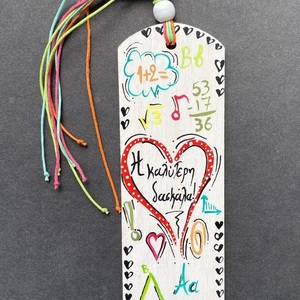 1+2=
Ββ
√3
53
-17
36
Η καλύτερη
δασκάλα!
!
0
Β
Αα